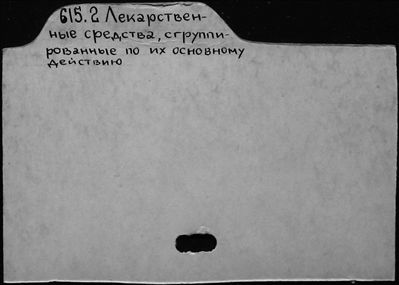 615.2 Лекарствен-
ные средства, сгруппи-
рованные по их основному
действию